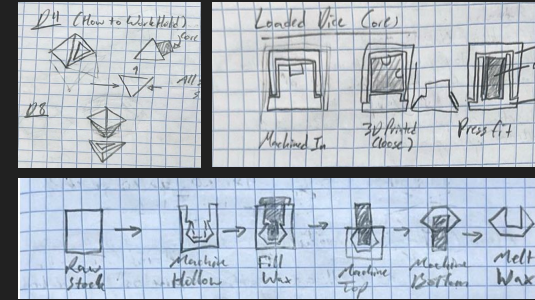 D4 (How to WorkHold)
Core
All
D8
Loaded Dice (Core)
Machined In
3D Printed
(loose)
Press fit
Raw
Stock
Machine
Hollow
Fill
Wax
Machine
Top
Machine
Bottom
Melt
Wax